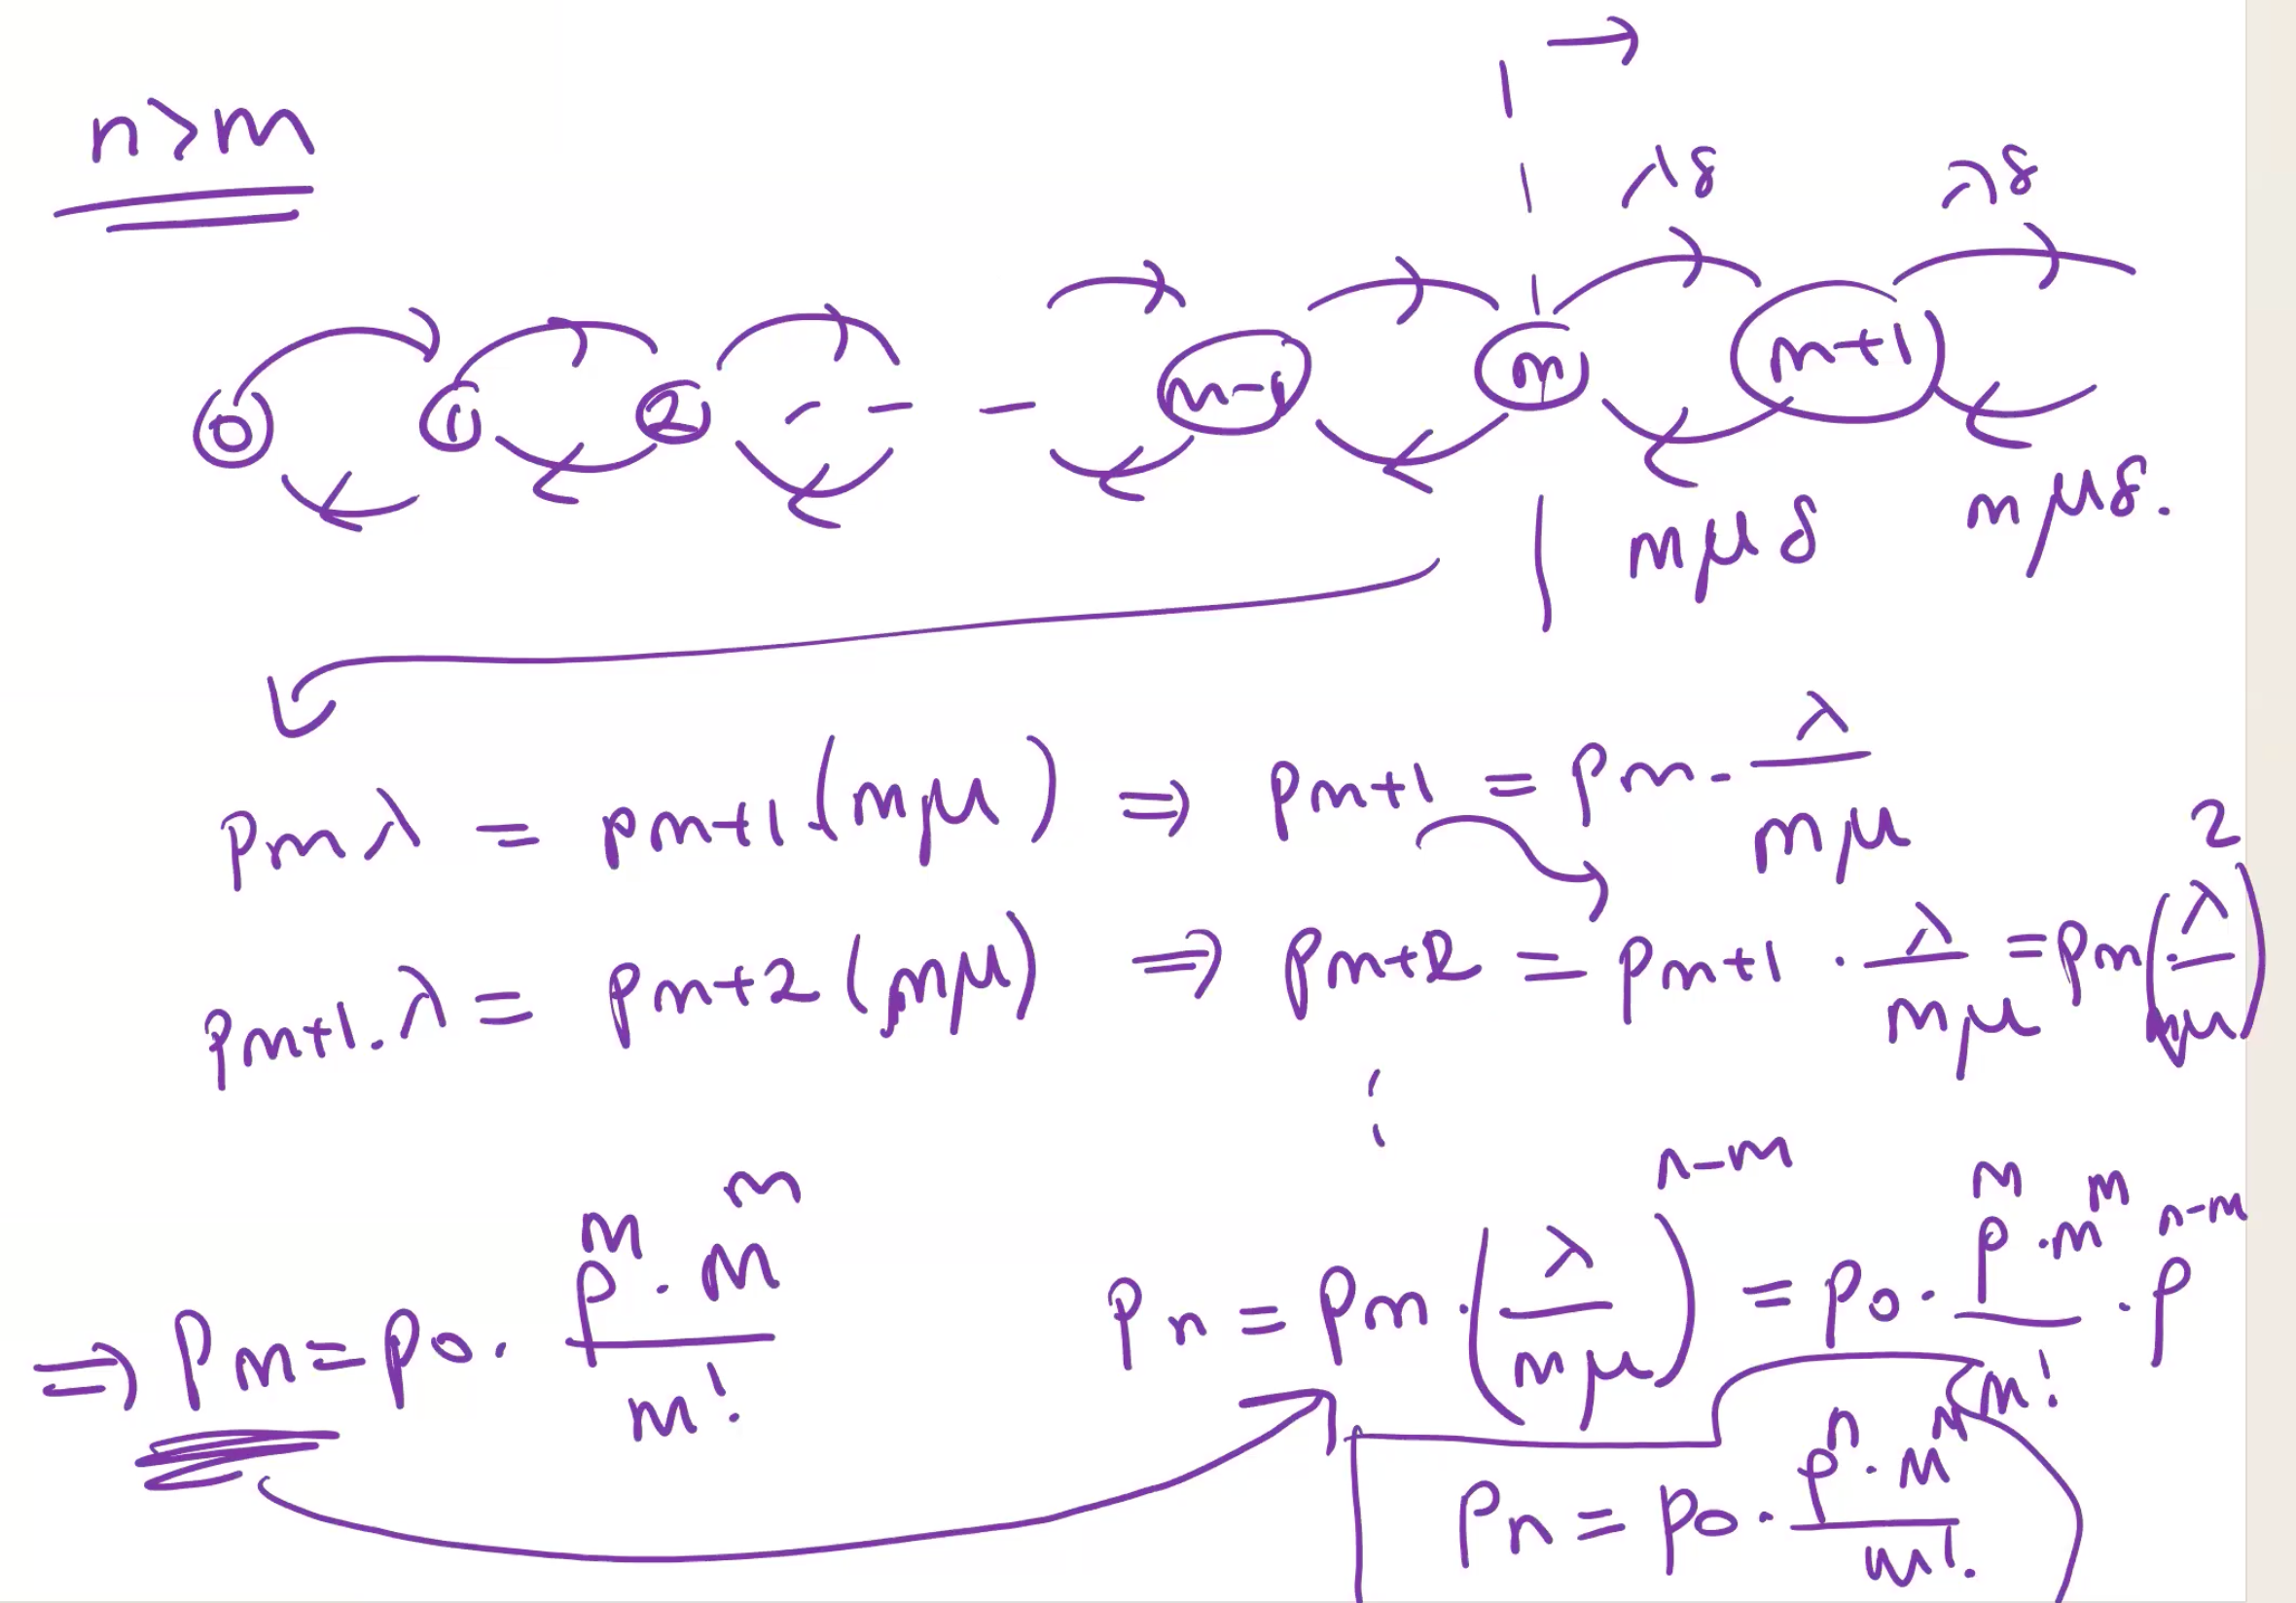 n>m
λδ λδ
0 1 2 - - - m-1 m m+1
mμδ mμδ.
pm λ = pm+1 (mμ) ⇒ pm+1 = pm . λ/mμ
pm+1 . λ = pm+2 (mμ) ⇒ pm+2 = pm+1 . λ/mμ = pm (λ/mμ)^2
⋮
⇒ pm = p0 . ρ^m . m^m / m!
pn = pm . (λ/mμ)^n-m = p0 . ρ^m . m^m / m! . ρ^n-m
pn = p0 . ρ^n . m^m / m!